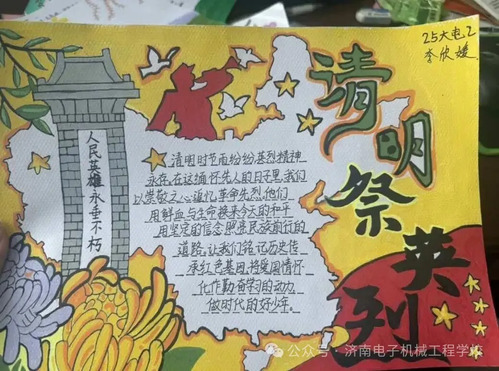 25大电2
李欣媛
请明祭英烈
人民英雄永垂不朽
清明时节雨纷纷,英烈精神
永存,在这缅怀先人的日子里,我们
以崇敬之心追忆革命先烈,他们
用鲜血与生命换来今天的和平
用坚定的信念照亮民族前行的
道路,让我们铭记历史传
承红色基因,将爱国情怀
化作勤奋学习的动力
做时代的好少年。
公众号·济南电子机械工程学校